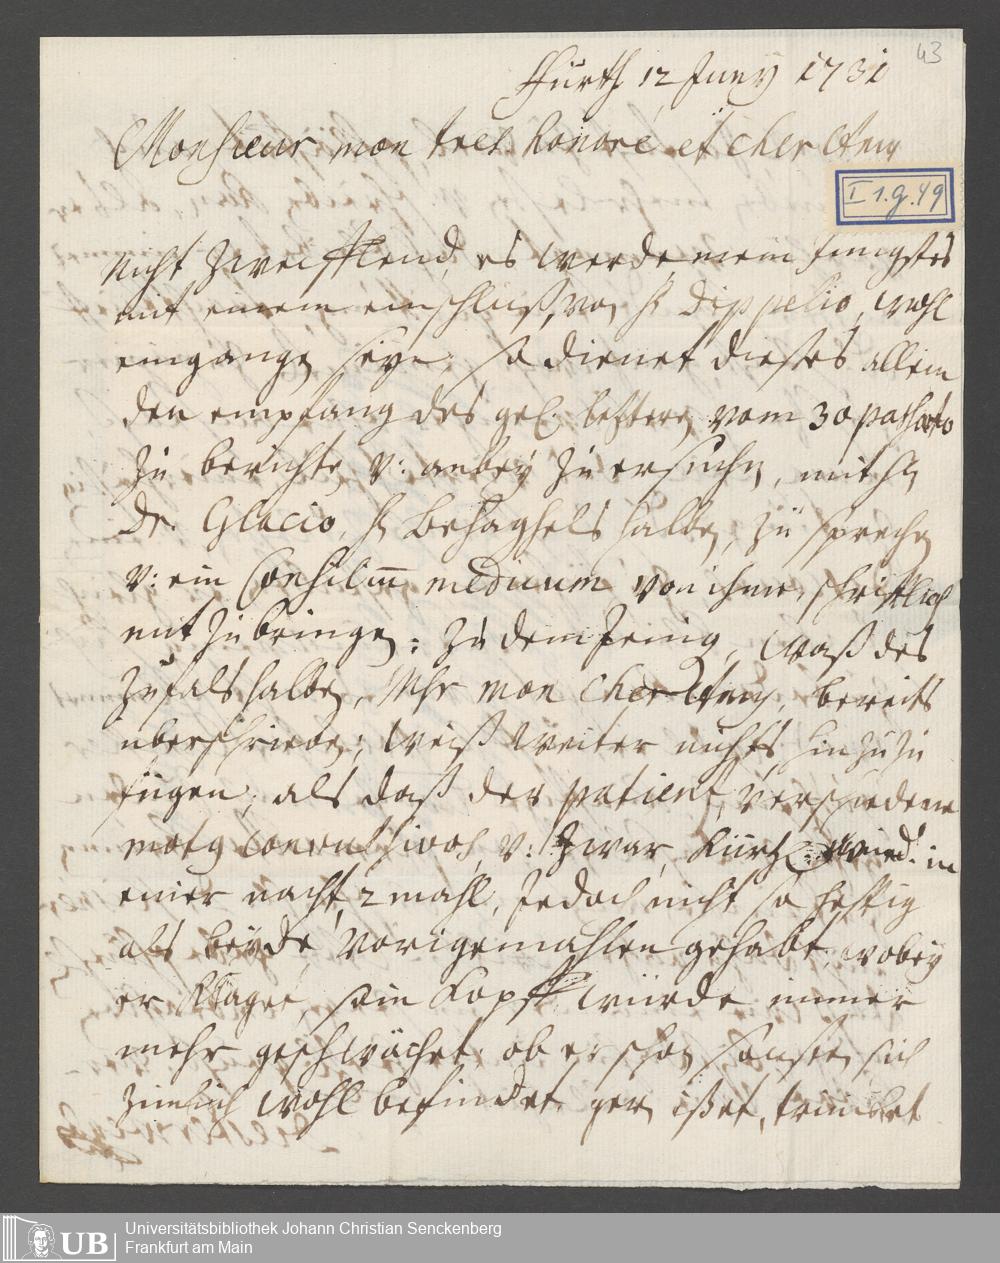 43
Fürth 12 Juny 1731
Monsieur mon tres honoré et cher Amy
I 1.g.49
Nicht zweifflend, es werde mein Jüngstes
mit einem einschluß, von H Dippelio, wohl
eingangen seyn, so dienet dieses allein
den empfang des gel. letztern vom 30 passato
zu berichten v: anbey zu ersuchen, mit Hn
Dr. Glocio, Hn Behaghels halben, zu sprechen
v: ein Consilium medicum von ihme, schrifftlich
mit zu bringen; zu demjenig, Waß des
Zufals halben, Ihr mon cher Amy, bereits
überschrieben; weiß weiter nichts hinzu zu
fügen, als daß der patient, verschiedene
motg convulsivos, v: zwar kürtzl. in
einer nacht 2 mahl, Jedoch nicht so hefftig
als beyde vorigemahlen gehabt, wobey
er klaget, sein Kopff würde immer
mehr geschwächet, ob er schon sonsten sich
zimlich wohl befindet, gern ißet, trincket
Universitätsbibliothek Johann Christian Senckenberg
Frankfurt am Main
UB